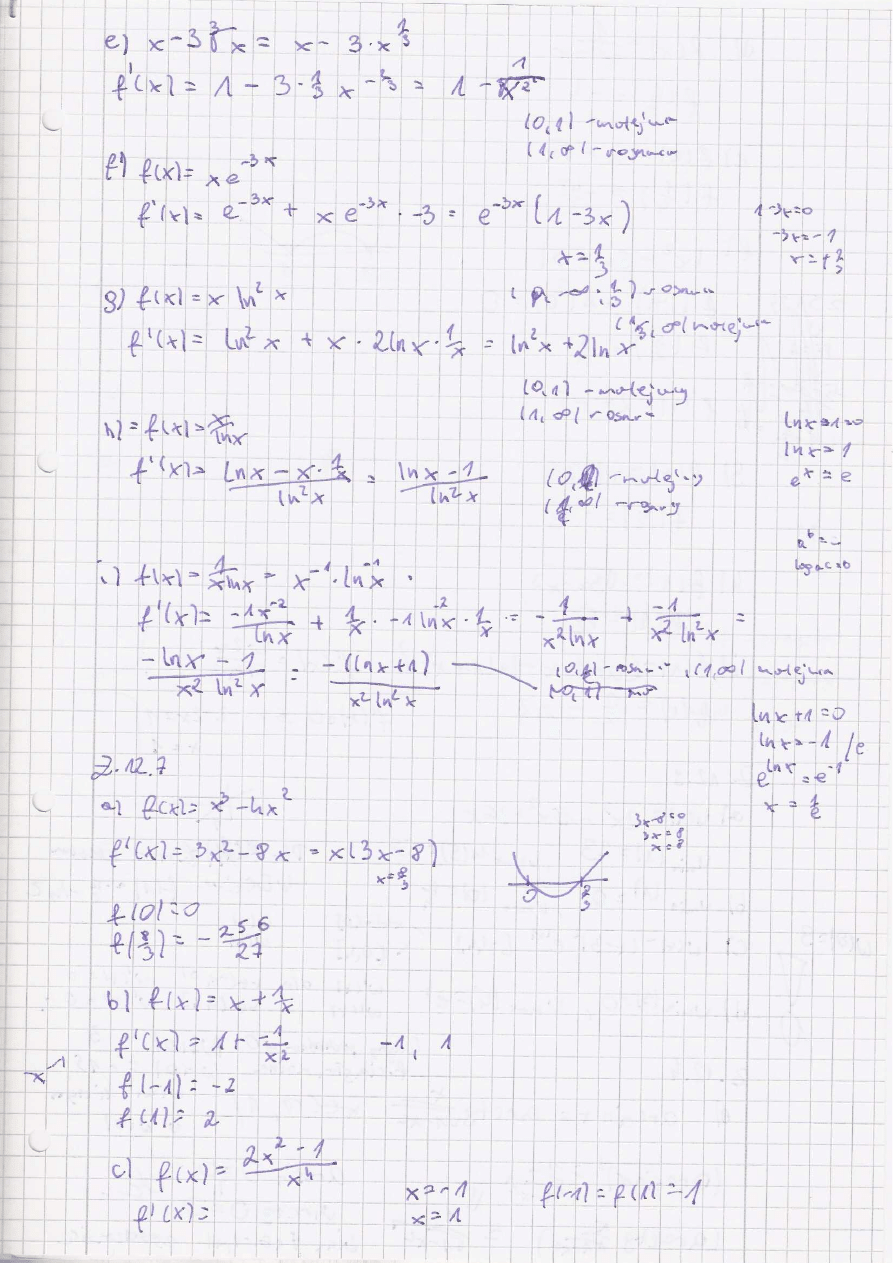 e) x-3∛x = x - 3·x^{1/3}
f'(x) = 1 - 3·1/3 x^{-2/3} = 1 - 1/∛x²
(0,1) - malejąca
(1,∞) - rosnąca
f) f(x) = xe^{-3x}
f'(x) = e^{-3x} + xe^{-3x}·-3 = e^{-3x}(1-3x)
x = 1/3
1-3x=0
-3x=-1
x=+1/3
(-∞, 1/3) rosnąca
(1/3, ∞) malejąca
g) f(x) = x ln²x
f'(x) = ln²x + x·2lnx·1/x = ln²x+2lnx
(0,1) - malejący
(1,∞) rosnąca
h) = f(x) = x/lnx
f'(x) = (lnx - x·1/x)/(ln²x) = (lnx-1)/(ln²x)
(0, ) - malejący
( ,∞) - rosnący
lnx-1=0
lnx=1
e^x = e
a^b = 
i) f(x) = 1/(xlnx) = x^{-1}·ln^{-1}x
f'(x) = (-1x^{-2})/(lnx) + 1/x·-1ln^{-2}x·1/x = -1/(x²lnx) + -1/(x²ln²x) =
(-lnx-1)/(x²ln²x) = (-(lnx+1))/(x²ln²x)
(0,1/e) - rosnąca, (1,∞) malejąca
lnx+1=0
lnx=-1 /e
e^{lnx} = e^{-1}
x = 1/e
Z.12.7
a) f(x) = x³-4x²
f'(x) = 3x²-8x = x(3x-8)
x=8/3
3x-8=0
3x=8
x=8
0 8/3
f(0)=0
f(8/3) = -256/27
b) f(x) = x+1/x
f'(x) = 1+ -1/x² -1, 1
-x^{-1}
f(-1) = -2
f(1) = 2
c) f(x) = (2x²-1)/x⁴
f'(x) =
x=-1
x=1
f(-1)=f(1)=1